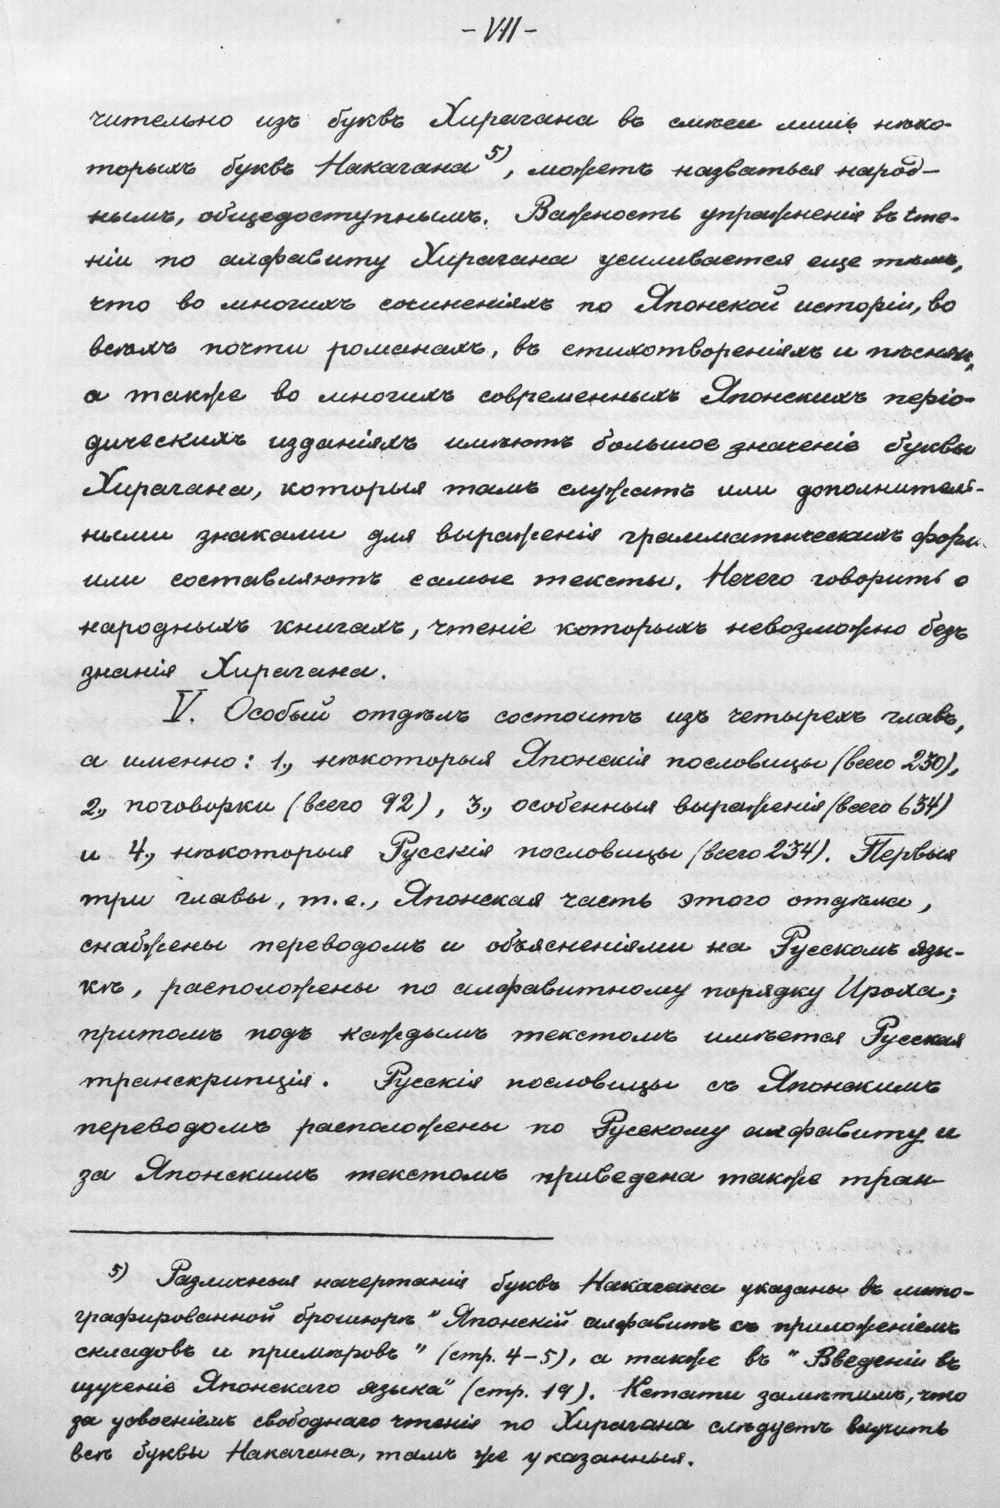 -VII-
чительно изъ буквъ Хирагана въ смѣси лишь нѣко-
торыхъ буквъ Накагана 5), можетъ назваться народ-
нымъ, общедоступнымъ. Важность упражненія въ чте-
ніи по алфавиту Хирагана усиливается еще тѣмъ,
что во многихъ сочиненіяхъ по Японской исторіи, во
всѣхъ почти романахъ, въ стихотвореніяхъ и пѣсняхъ,
а также во многихъ современныхъ Японскихъ періо-
дическихъ изданіяхъ имѣютъ большое значеніе буквы
Хирагана, которыя тамъ служатъ или дополнитель-
ными знаками для выраженія грамматическихъ формъ
или составляютъ самые тексты. Нечего говорить о
народныхъ книгахъ, чтеніе которыхъ невозможно безъ
знанія Хирагана.
V. Особый отдѣлъ состоитъ изъ четырехъ главъ,
а именно: 1., нѣкоторыя Японскія пословицы (всего 230),
2., поговорки (всего 92), 3., особенныя выраженія (всего 634)
и 4., нѣкоторыя Русскія пословицы (всего 234). Первыя
три главы, т.е., Японская часть этого отдѣла,
снабжены переводомъ и объясненіями на Русскомъ язы-
кѣ, расположены по алфавитному порядку Ироха;
притомъ подъ каждымъ текстомъ имѣется Русская
транскрипція. Русскія пословицы съ Японскимъ
переводомъ расположены по Русскому алфавиту и
за Японскимъ текстомъ приведена также тран-
5) Различныя начертанія буквъ Накагана указаны въ лито-
графированной брошюрѣ "Японскій алфавитъ съ приложеніемъ
складовъ и примѣровъ" (стр. 4-5), а также въ "Введеніи въ
изученіе Японскаго языка" (стр. 19). Кстати замѣтимъ, что
за усвоеніемъ свободнаго чтенія по Хирагана слѣдуетъ выучить
всѣ буквы Накагана, тамъ же указанныя.